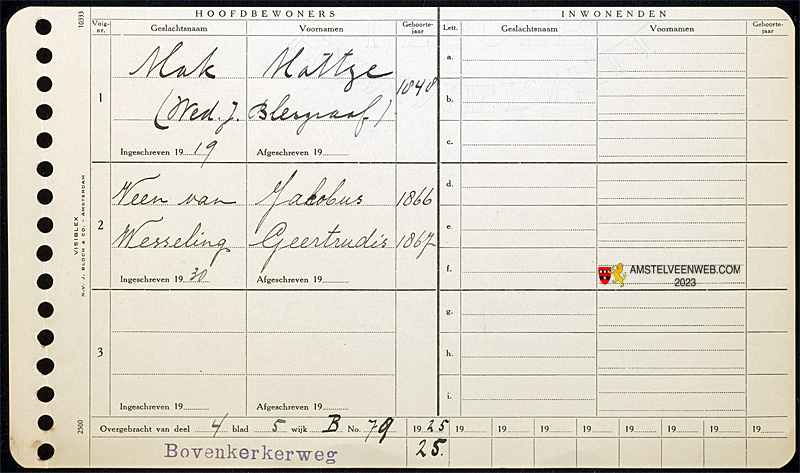 HOOFDBEWONERS
INWONENDEN
Volg-nr. Geslachtsnaam Voornamen Geboorte-jaar Lett. Geslachtsnaam Voornamen Geboorte-jaar
1
Mok Mattze 1848
(Wed. J. Blesgraaf)
Ingeschreven 19 19 Afgeschreven 19
2
Veen van Jakobus 1866
Wesseling Geertrudis 1867
Ingeschreven 19 30 Afgeschreven 19
3
Ingeschreven 19 Afgeschreven 19
a.
b.
c.
d.
e.
f.
g.
h.
i.
AMSTELVEENWEB.COM
2023
Overgebracht van deel 4 blad 5 wijk B No. 79 19 25 19 19 19 19 19 19 19 19
Bovenkerkerweg 25.
10333
VISIBLEX
N.V. J. BLOCH & CO. - AMSTERDAM
2500